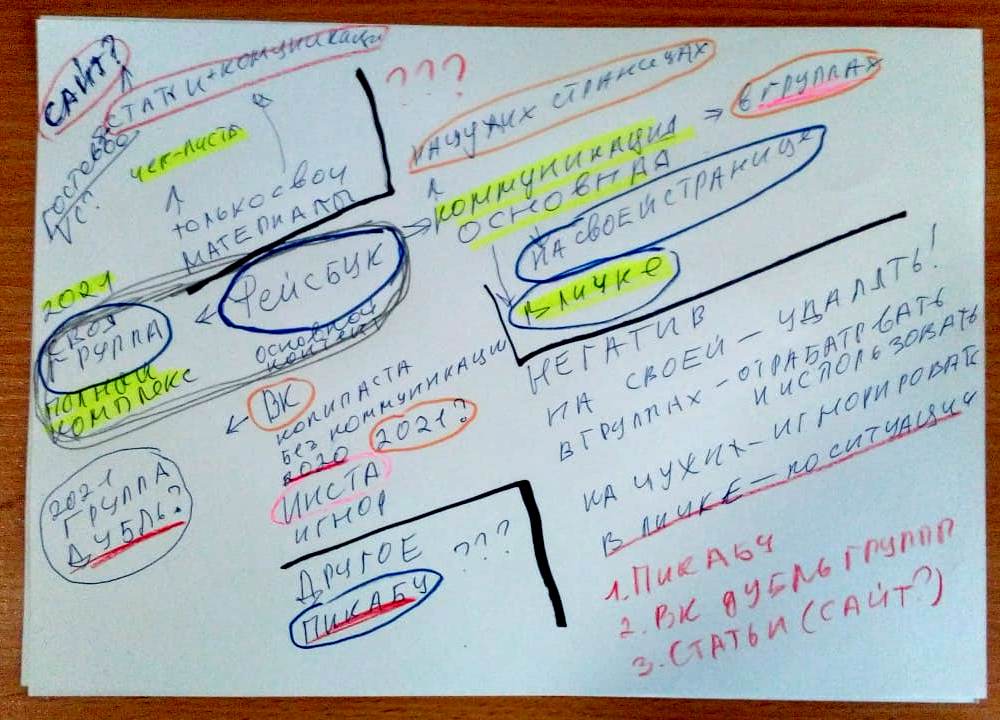 САЙТ?
СТАТЬИ+КОММУНИКАЦИ
ГОСТЕВОЕ
VC?
ЧЕК-ЛИСТЫ
ТОЛЬКО СВОИ
МАТЕРИАЛЫ
???
НА ЧУЖИХ СТРАНИЦАХ
В ГРУППАХ
КОММУНИКАЦИЯ
ОСНОВНАЯ
НА СВОЕЙ СТРАНИЦЕ
В ЛИЧКЕ
ФЕЙСБУК
ОСНОВНОЙ
КОНТЕНТ
2021
СВОЯ
ГРУППА
ПОЛНЫЙ
КОМПЛЕКС
2021
ГРУППА
ДУБЛЬ?
ВК
КОПИПАСТА
БЕЗ КОММУНИКАЦИИ
2020 2021?
ИНСТА
ИГНОР
ДРУГОЕ
???
ПИКАБУ
НЕГАТИВ
НА СВОЕЙ – УДАЛЯТЬ!
В ГРУППАХ – ОТРАБАТЫВАТЬ
И ИСПОЛЬЗОВАТЬ
НА ЧУЖИХ – ИГНОРИРОВАТЬ
В ЛИЧКЕ – ПО СИТУАЦИИ
1. ПИКАБУ
2. ВК ДУБЛЬ ГРУПП
3. СТАТЬИ (САЙТ?)